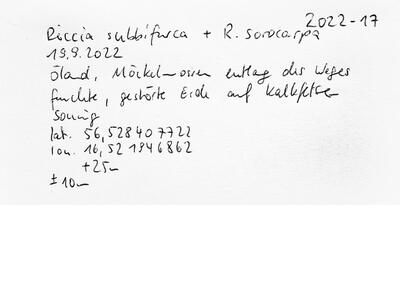 2022-17
Riccia subbifurca + R. sorocarpa
19.9.2022
Öland, Möckelmossen entlag des Weges
feuchte, gestörte Erde auf Kalkfelsen
Sonnig
lat. 56,528407722
lon. 16,521946862
+25m
±10m